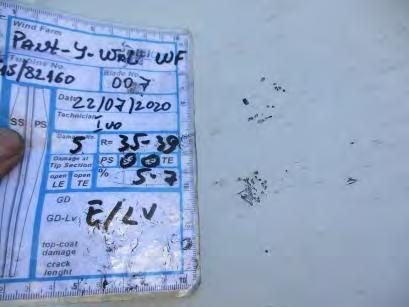 Wind Farm
Pant-y-Wal WF
Turbine No. Blade No
15/82160 007
Date 22/07/2020
Technician
Ivo
5 R= 35-39
SS PS
Damage at
Tip Section PS 00 TE
open LE open TE % 5-7
GD
GD-Lv E/LV
top-coat
damage
crack
lenght